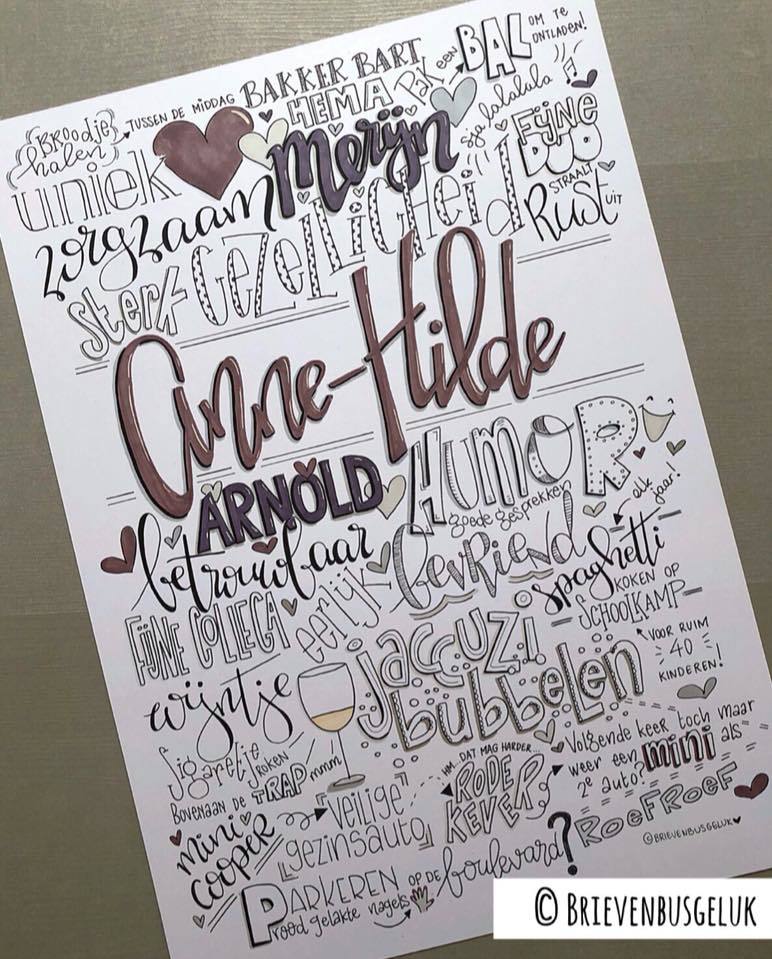 Broodje halen
TUSSEN DE MIDDAG BAKKER BART
HEMA
Pak een BAL OM TE ONTLADEN!
uniek
merijn
sja lalalala
FIJNE DUO
STRAALT Rust UIT
zorgzaam
sterk
GEZELLIGHEID
Anne-Hilde
ARNOLD
HUMOR
goede gesprekken
betrouwbaar
bevriend
alle jaar!
FIJNE COLLEGA
eerlijk
spaghetti
KOKEN OP SCHOOLKAMP
VOOR RUIM 40 KINDEREN!
wijntje
jaccuzi
bubbelen
Sigaretje ROKEN
BOVENAAN DE TRAP mmm
HM... DAT MAG HARDER...
RODE KEVER
Volgende keer toch maar
weer een mini als
2e auto?
ROEFROEF
mini COOPER
VEILIGE
gezinsauto
PARKEREN OP DE boulevard?
rood gelakte nagels
©BRIEVENBUSGELUK
© BRIEVENBUSGELUK